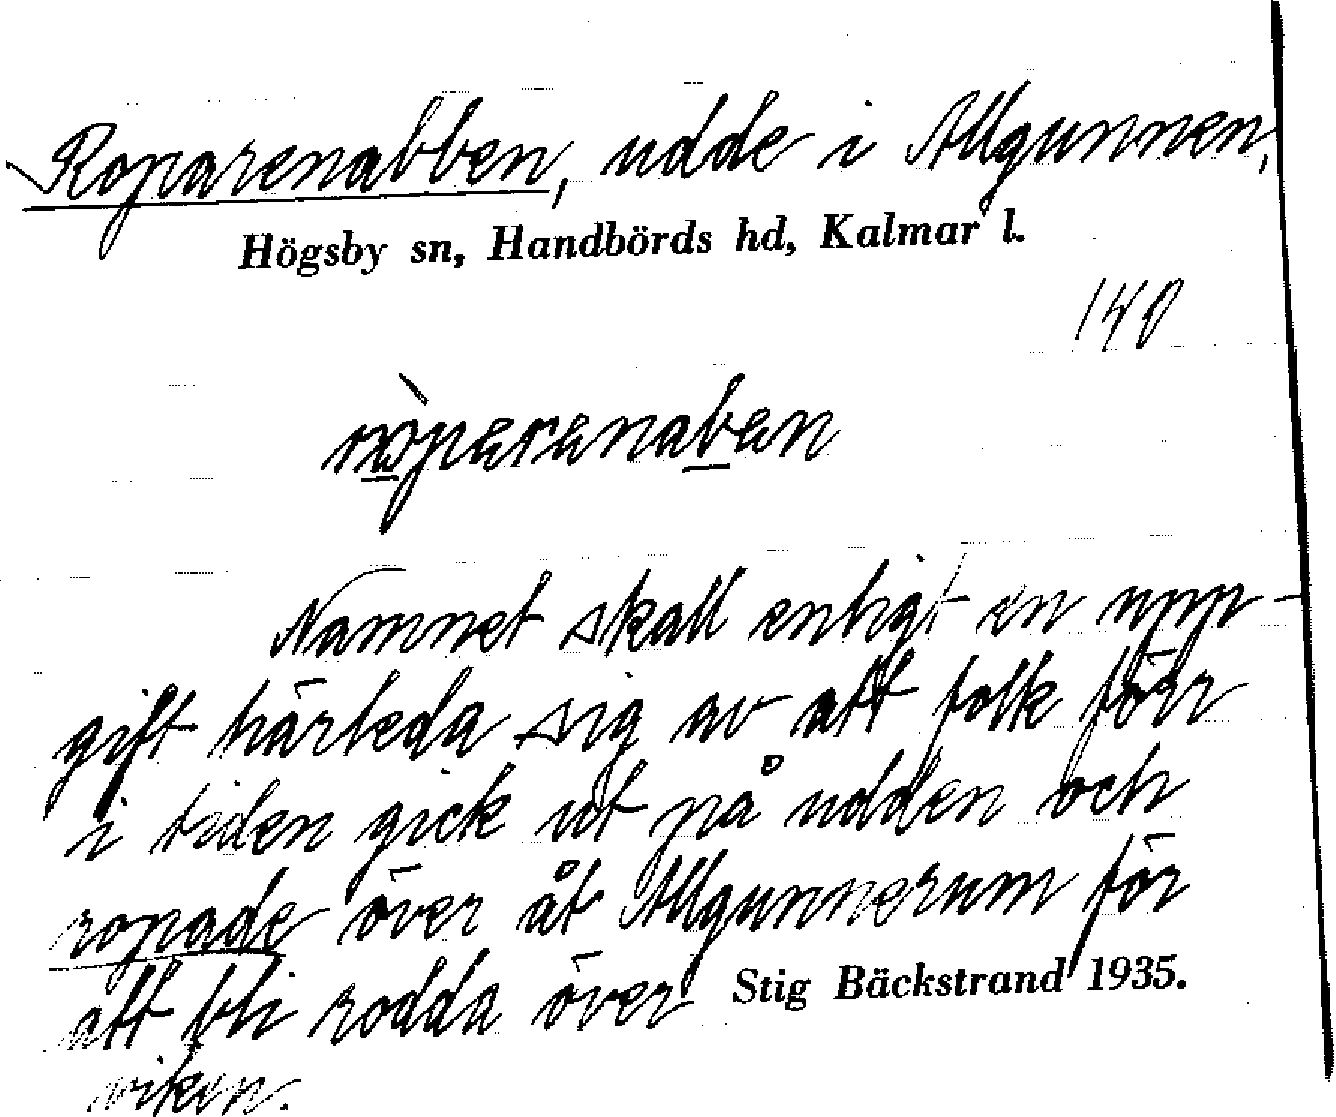 Roparenabben, udde i Allgunnen,
Högsby sn, Handbörds hd, Kalmar l.
140
Namnet skall enligt en upp-
gift härleda sig av att folk förr
i tiden gick ut på udden och
ropade över åt Allgunnerum för
att bli rodda över
Stig Bäckstrand 1935.
viken.